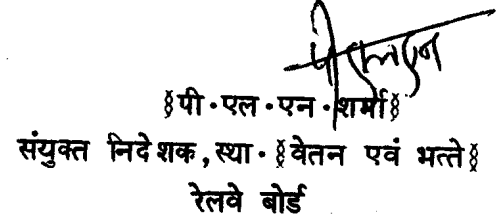 पी एल एन
(पी·एल·एन·शर्मा)
संयुक्त निदेशक, स्था·(वेतन एवं भत्ते)
रेलवे बोर्ड